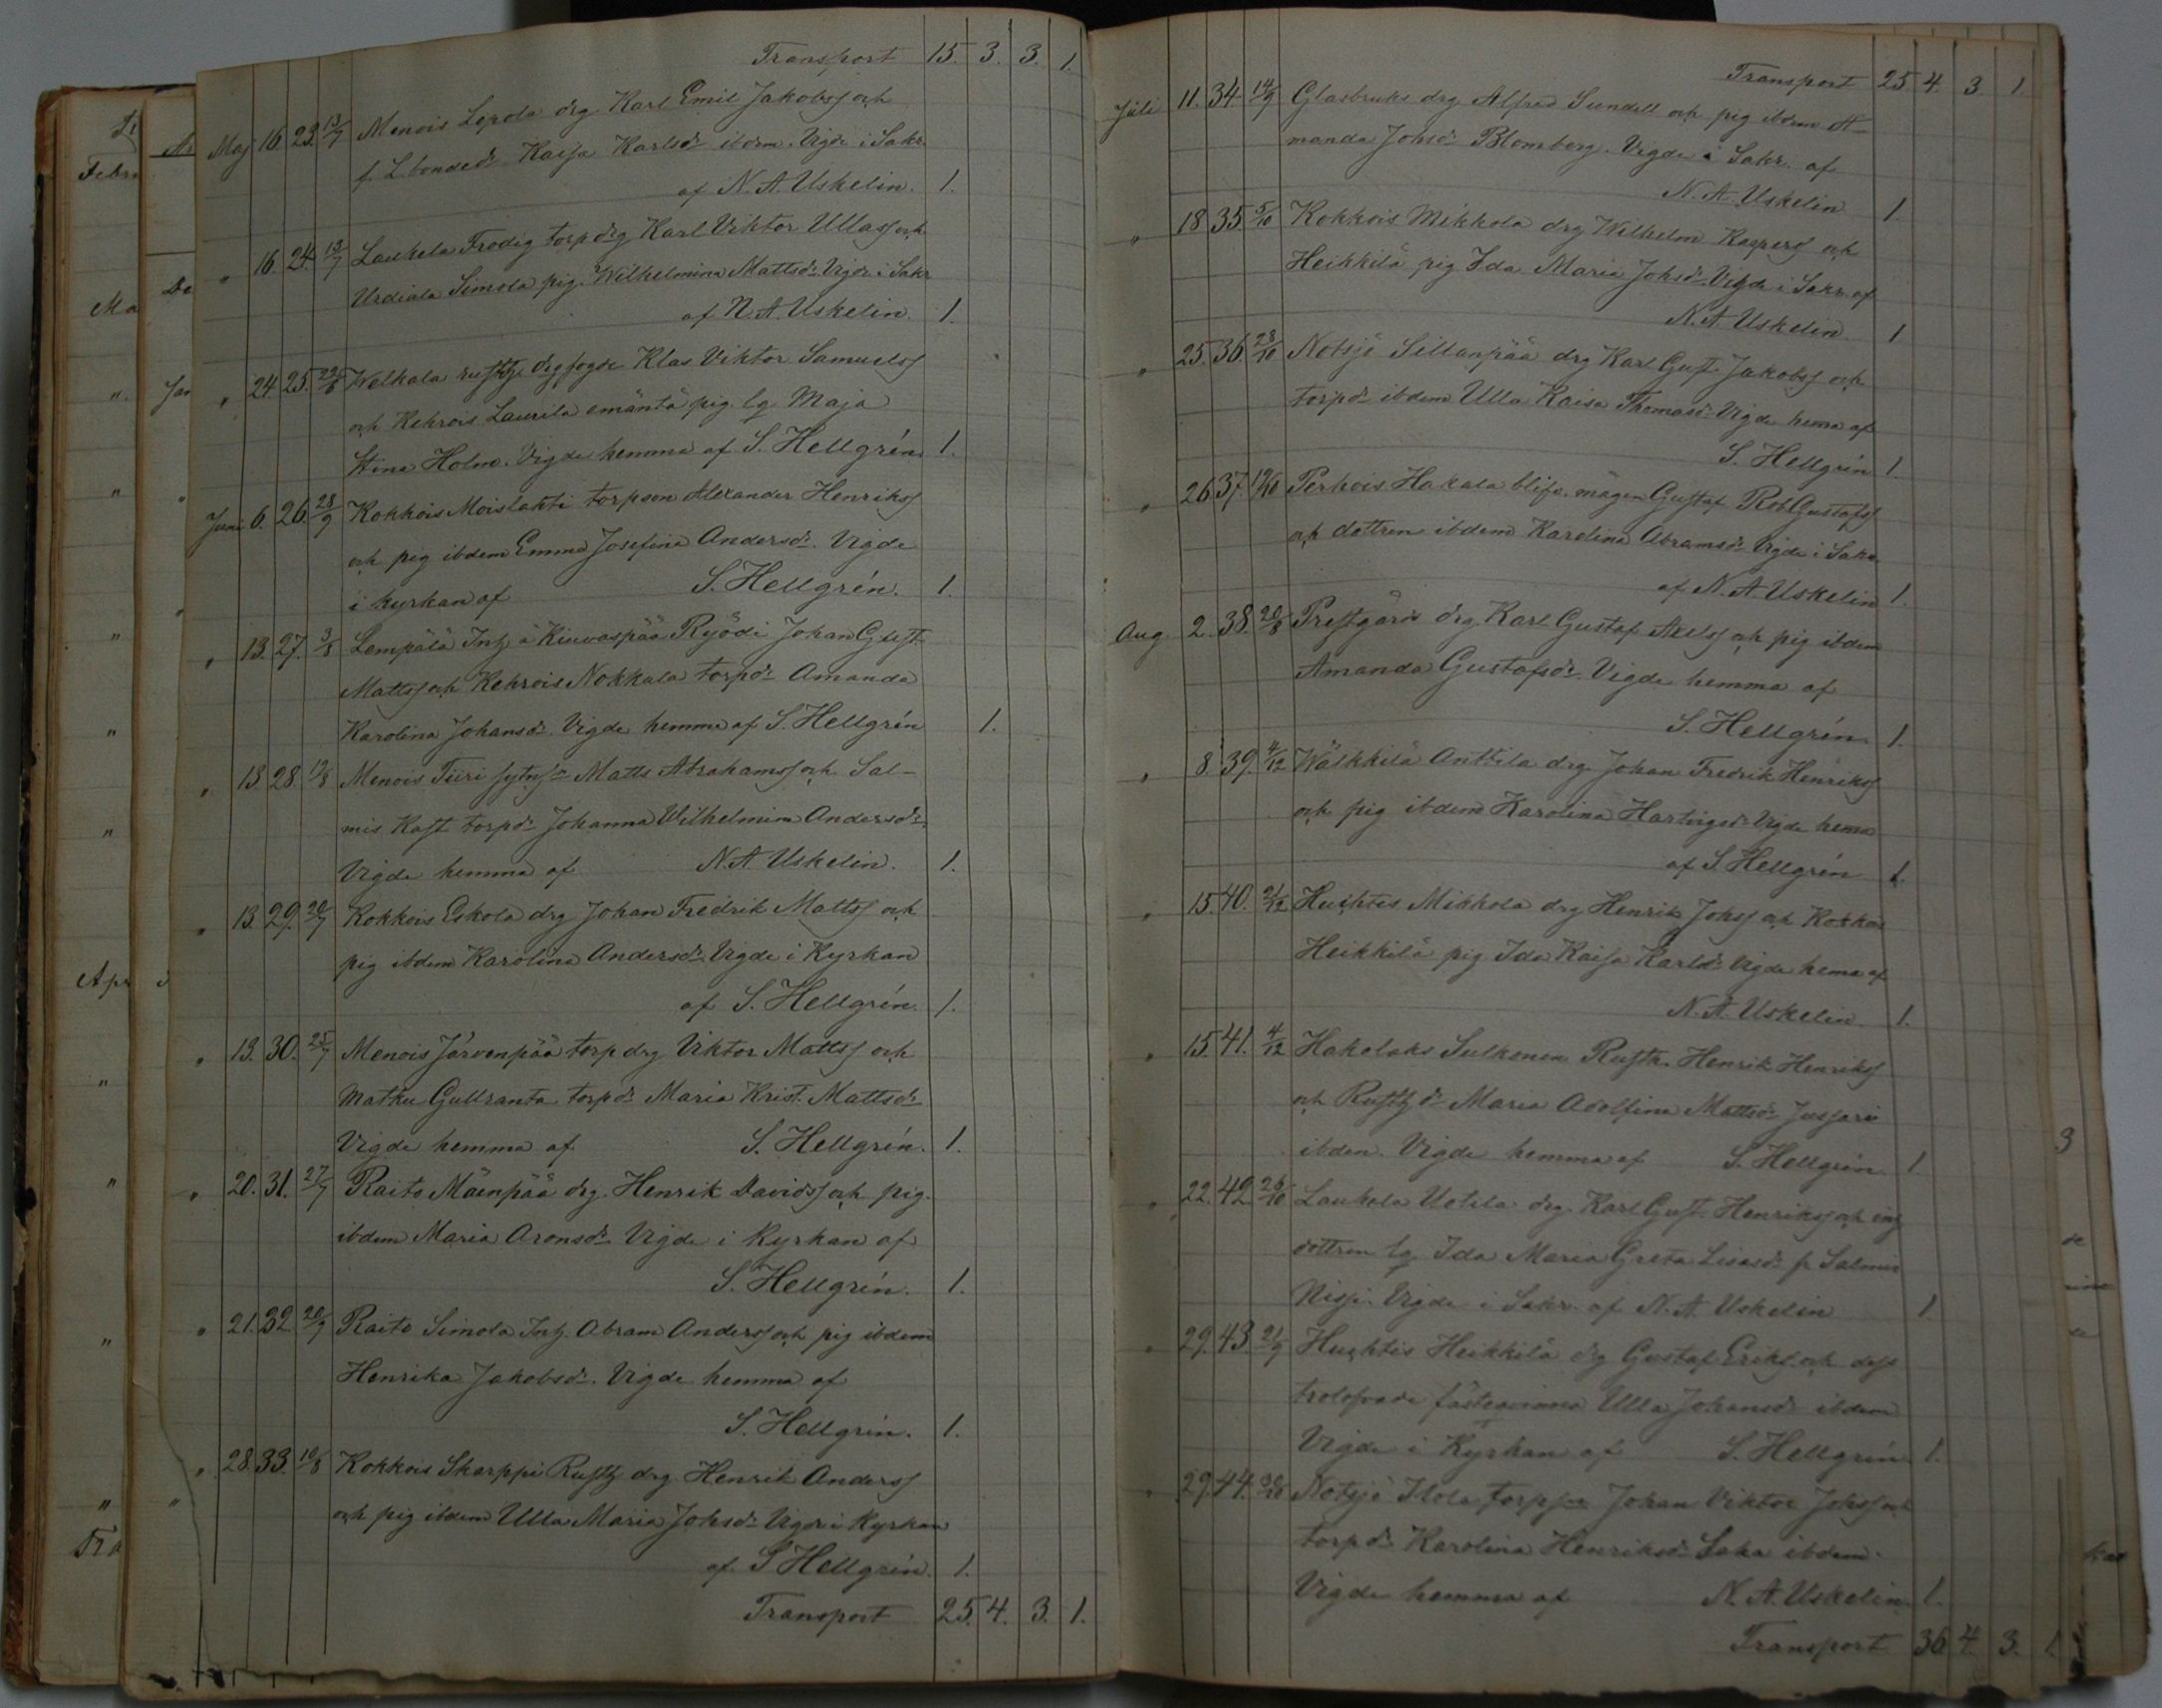 Transport 15. 3. 3. 1.
Maj 16. 23. 13/7 Menois Lepola drg Karl Emil Jakobss och
f. L. bonded:r Kaisa Karlsd:r ibdem. Vigde i Sakr.
af N. A. Uskelin. 1.
" 16. 24. 13/7 Laukela Frodig torp drg Karl Viktor Ullass och
Urdiala Simola pig. Wilhelmina Mattsd:r Vigde i Sakr
af N. A. Uskelin. 1.
" 24. 25. Welkala drgfogde Klas Viktor Samuelss
och Kehrois Laurila emäntä pig. lg Maja
Stina Holm. Vigde hemma af S. Hellgrén. 1.
Juni 6. 26. 28/9 Kokkois Moislahti torpson Alexander Henrikss
och pig ibdem Emma Josefina Andersd:r Vigde
i kyrkan af S. Hellgrén. 1.
" 13. 27. 3/8 Lempälä Inh. å Kiuvaspää Ryödi Johan Gust.
Mattss och Kehrois Nokkala torpd:r Amanda
Karolina Johansd:r Vigde hemma af S. Hellgrén 1.
" 13. 28. Menois Tiiri Matts Abrahamss och Sal-
mis Kast torpd:r Johanna Wilhelmina Andersd:r
Vigde hemma af N. A. Uskelin. 1.
" 13. 29. 20/7 Kokkois Eskola drg Johan Fredrik Mattss och
pig ibdem Karolina Andersd:r Vigde i Kyrkan
af S. Hellgrén. 1.
" 13. 30. 25/7 Menois Järvenpää torp drg Viktor Mattss och
Matku Gullranta torpd:r Maria Krist. Mattsd:r
Vigde hemma af S. Hellgrén. 1.
" 20. 31. 27/7 Raito Mäenpää drg. Henrik Davidss och pig.
ibdem Maria Aronsd:r Vigde i Kyrkan af
S. Hellgrén. 1.
" 21. 32. 20/9 Raito Simola Inh. Abram Anderss och pig ibdem
Henrika Jakobsd:r. Vigde hemma af
S. Hellgrén. 1.
" 28. 33. 10/8 Kokkois Skarppi Rusth drg. Henrik Anderss
och pig ibdem Ulla Maria Johsd:r Vigde i Kyrkan
af S Hellgrén. 1.
Transport 25. 4. 3. 1.
Transport 25 4. 3 1
Juli 11. 34 14/9 Glasbruks drg Alfred Sundell och pig ibdem A-
manda Johsd:r Blomberg. Vigde i Sakr. af
N. A. Uskelin 1
" 18 35 5/10 Kokkois Mikkola drg Wilhelm Kaspers och
Heikkilä pig Ida Maria Johsd:r Vigde i Sakr. af
N. A. Uskelin 1
" 25. 36. 28/10 Notsjö Sillanpää drg Karl Gust. Jakobss och
torpd:r ibdem Ulla Kaisa Thomasd:r Vigde hema af
S. Hellgrén 1.
" 26 37. Perhois Hakala blifv. mågen Gustaf Rob Gustafss
och dottren ibdem Karolina Abramsd:r Vigde i Sakr
af N. A. Uskelin 1.
Aug. 2. 38. 20/8 Prestgårds drg. Karl Gustaf Axelss och pig ibdem
Amanda Gustafsd:r Vigde hemma af
S. Hellgrén. 1.
" 8. 39. 4/12 Wälkkilä Anttila drg. Johan Fredrik Henrikss
och pig ibdem Karolina Hartvigsd:r Vigde hema
af S. Hellgrén 1.
" 15. 40. 21/12 Huhtis Mikkola drg Henrik Johss och Kokkos
Heikkilä pig Ida Kaisa Karlsd:r Vigde hema af
N. A. Uskelin 1.
" 15. 41. 4/12 Hakolaks Sulkonen Rusth. Henrik Henrikss
och Rusth d:r Maria Adolfina Mattsd:r Jussari
ibdem. Vigde hemma af S. Hellgrén 1.
" 22. 42. 26/10 Laukola Uotila drg. Karl Gust. Henrikss och inh
dottren lg Ida Maria Greta Lisasd:r fr Salmis
Vigde i Sakr. af N. A. Uskelin 1
" 29. 43. 21/9 Huhtis Heikkilä drg Gustaf Eriks. och dess
trolofvade fästeqvinna Ulla Johansd:r ibdem
Vigde i Kyrkan af S. Hellgrén 1.
" 29. 44. Notsjö Ilola torpson Johan Viktor Johss och
torpd:r Karolina Henriksd:r Saka ibdem.
Vigde hemma af N. A. Uskelin 1.
Transport 36 4. 3. 1.